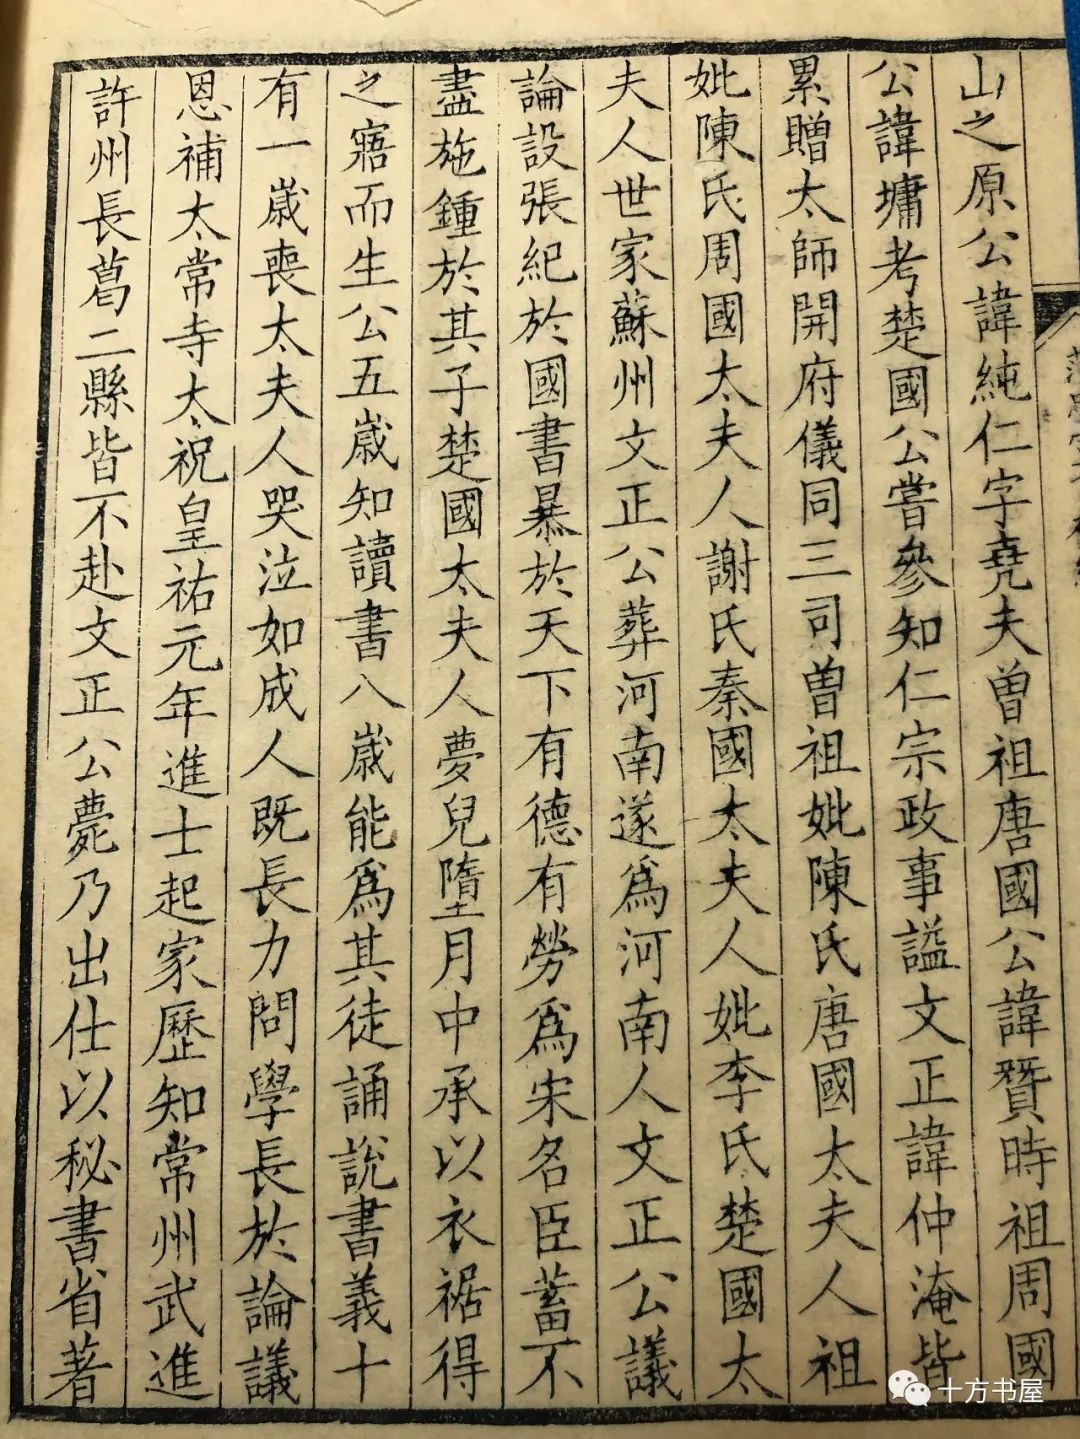 山之原公諱純仁字堯夫曽祖唐國公諱贊時祖周國
公諱墉考楚國公嘗參知仁宗政事謚文正諱仲淹皆
累贈太師開府儀同三司曽祖妣陳氏唐國太夫人祖
妣陳氏周國太夫人謝氏秦國太夫人妣李氏楚國太
夫人世家蘇州文正公葬河南遂爲河南人文正公議
論設張紀於國書暴於天下有德有勞爲宋名臣蓄不
盡施鍾於其子楚國太夫人夢兒墮月中承以衣裾得
之寤而生公五歳知讀書八歳能爲其徒誦說書義十
有一歳喪太夫人哭泣如成人既長力問學長於論議
恩補太常寺太祝皇祐元年進士起家歷知常州武進
許州長葛二縣皆不赴文正公薨乃出仕以秘書省著
十方书屋